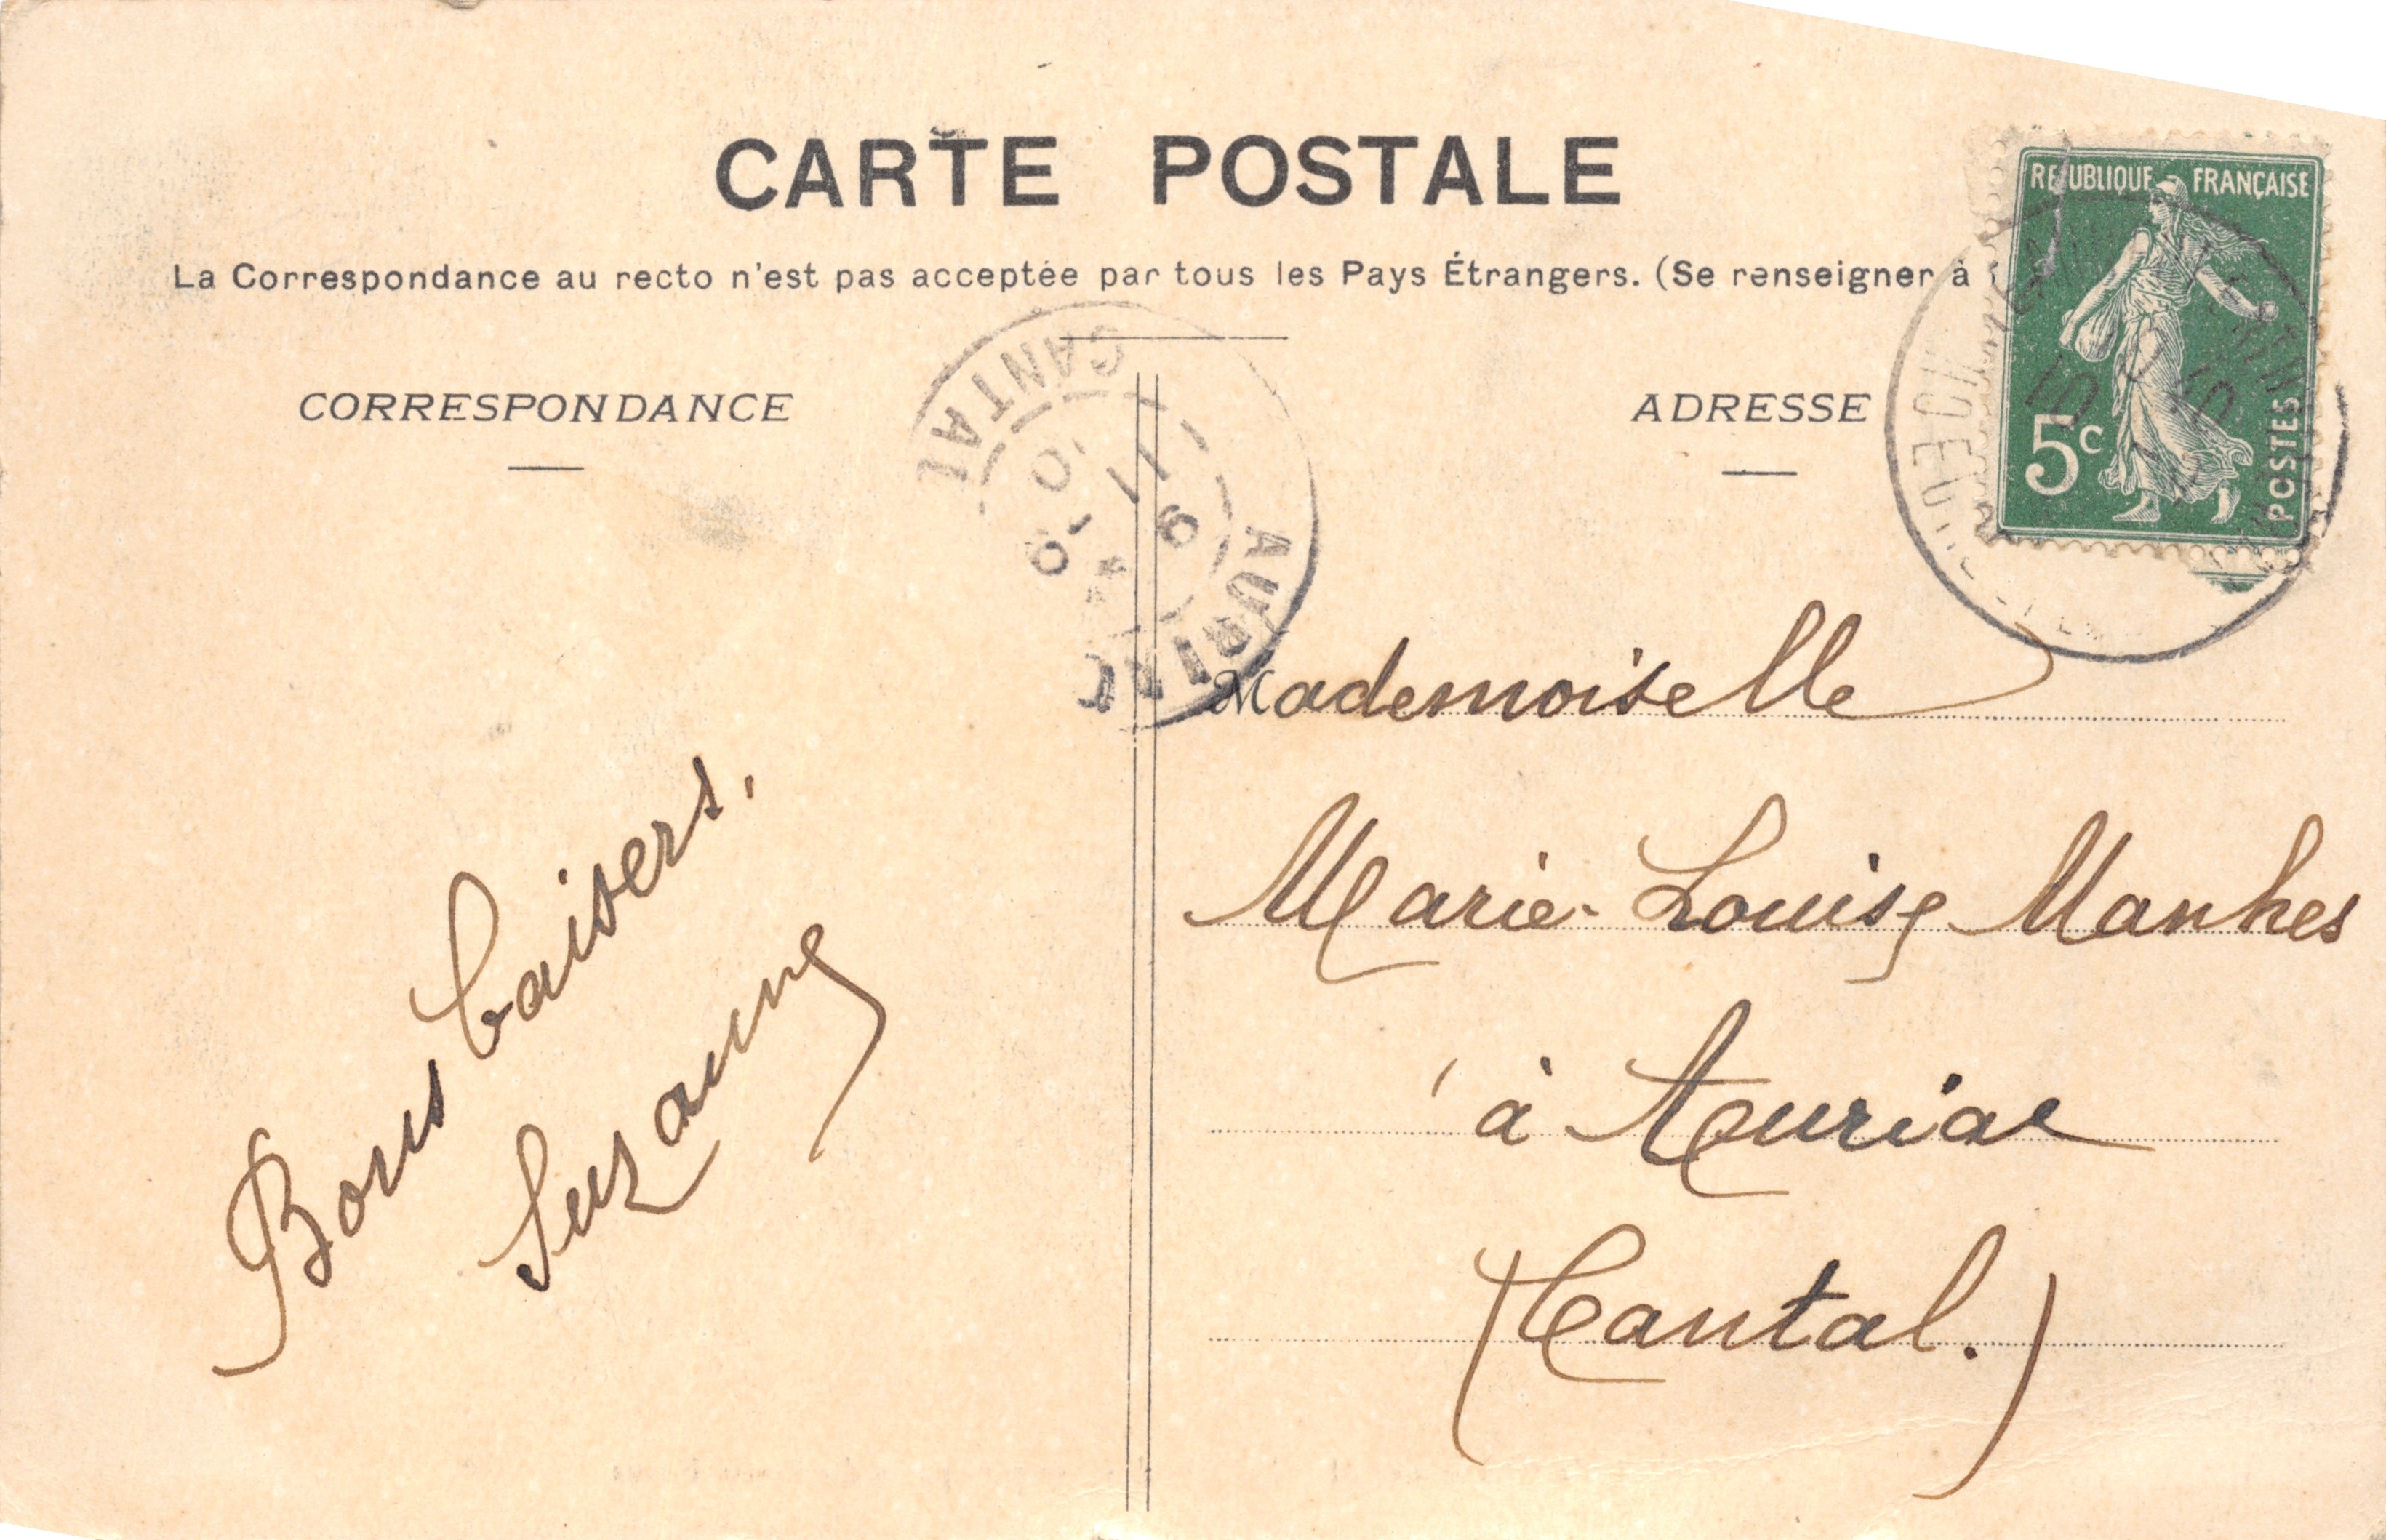 CARTE POSTALE
La Correspondance au recto n'est pas acceptée par tous les Pays Étrangers. (Se renseigner à
REPUBLIQUE FRANÇAISE
5c
POSTES
CANTAL
AURIAC
CORRESPONDANCE
ADRESSE
Mademoiselle
Marie-Louise Manhes
à Auriac
(Cantal.)
Bons baisers.
Suzanne